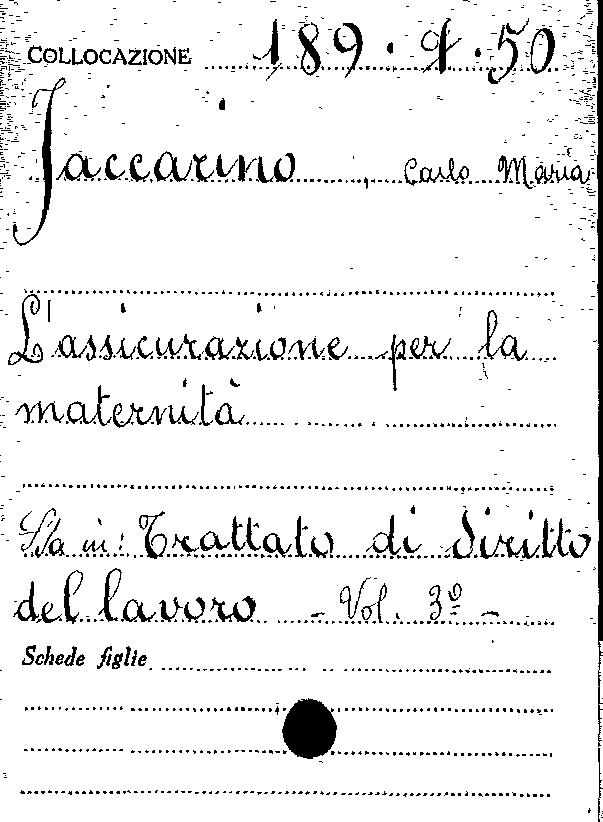 COLLOCAZIONE 189 . . 50
Jaccarino, Carlo Maria
L'assicurazione per la
maternità
Sta in: Trattato di diritto
del lavoro - Vol. 3º -
Schede figlie